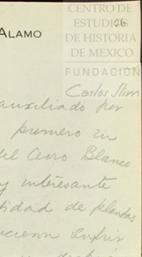 CENTRO DE
ESTUDIOS
DE HISTORIA
DE MEXICO
FUNDACIÓN
Carlos Slim
ALAMO
auxiliado por
primero en
del Cerro Blanco
y interesante
tidad de plantas
hicieron sufrir